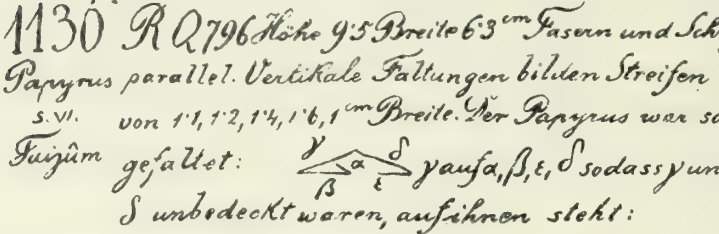 1130 R Q 796 Höhe 9·5 Breite 6·3 cm Fasern und Sch
Papyrus parallel. Vertikale Faltungen bilden Streifen
s. VI. von 1·1, 1·2, 1·4, 1·6, 1 cm Breite. Der Papyrus war so
Faijûm gefaltet: γ β α ε δ γ auf α, β, ε, δ sodass γ un
δ unbedeckt waren, auf ihnen steht: